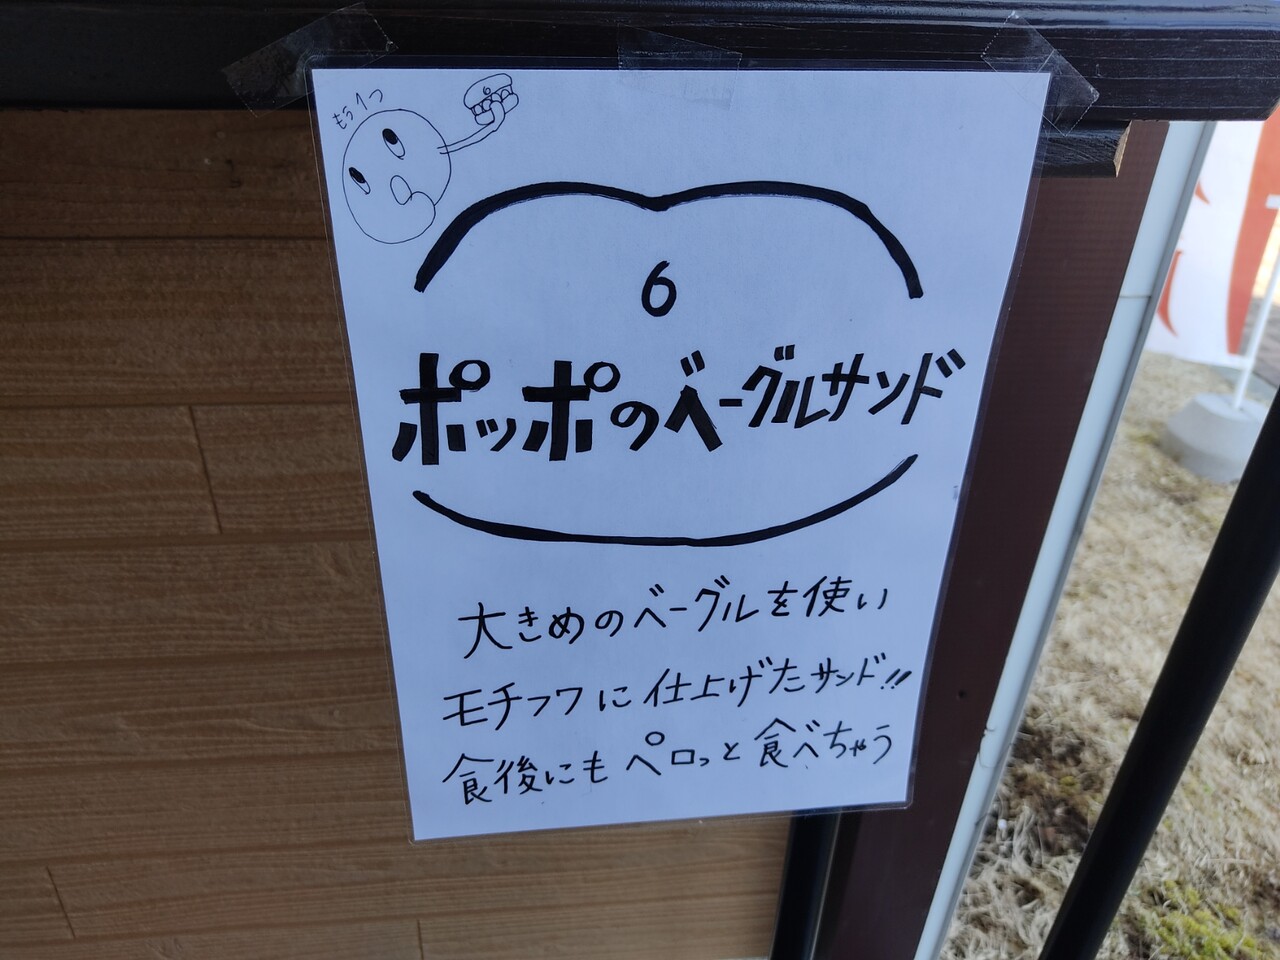 もう1つ
6
6
ポッポのベーグルサンド
大きめのベーグルを使い
モチフワに仕上げたサンド!!
食後にもペロっと食べちゃう